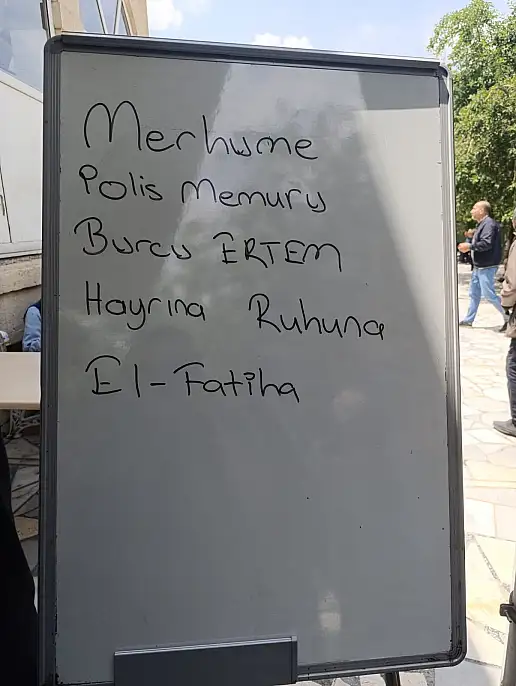 Merhume
Polis Memuru
Burcu ERTEM
Hayrına Ruhuna
El-Fatiha